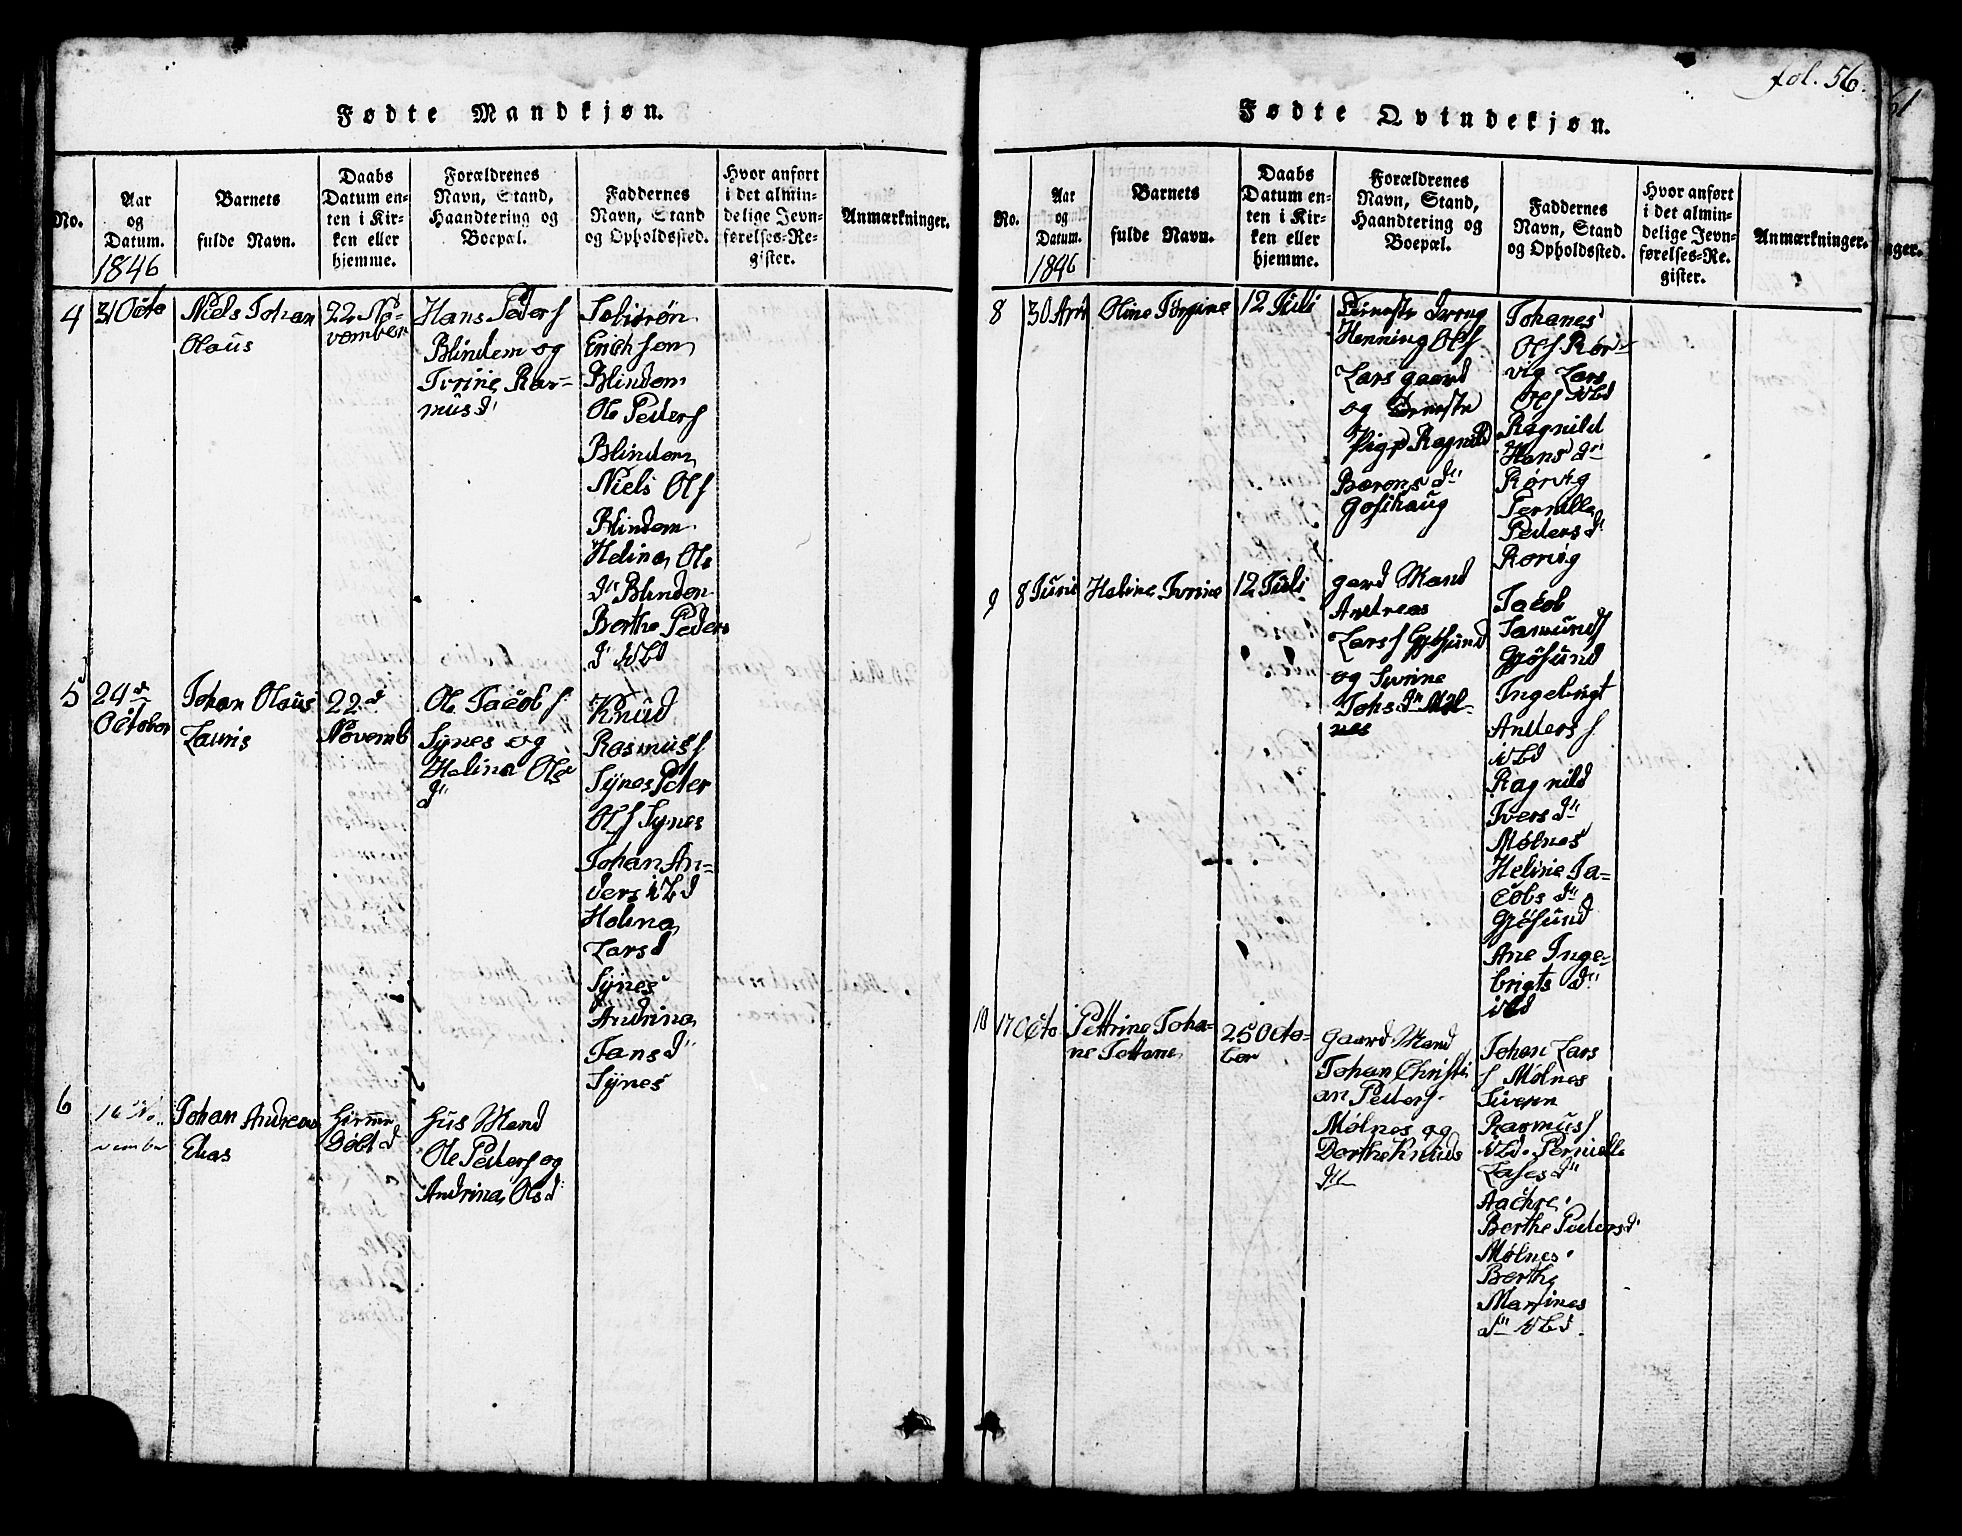 fol. 56.
61
Fødte Mandkjøn.
No.
Aar
og
Datum.
1846
Barnets
fulde Navn.
Daabs
Datum en-
ten i Kir-
ken eller
hjemme.
Forældrenes
Navn, Stand,
Haandtering og
Boepæl.
Faddernes
Navn, Stand
og Opholdssted.
Hvor anført
i det almin-
delige Jevn-
førelses-Re-
gister.
Anmærkninger.
4
31 Octo
Niels Johan
Olaus
22 No-
vember
Hans Peders
Blindem og
Ivrine Ras-
musd
Erichsen
Blindem
Ole Peders
Blindem
Niels Ols
Blindem
Helina Ols
d Blindem
Berthe Peders
d ibd
5
24d
October
Johan Olaus
Lauris
22d
Novemb
Ole Jacobs
Synes og
Helina Ols
d
Knud
Rasmuss
Synes Peter
Ols Synes
Johan An-
ders ibd
Helina
Larsd
Synes
Andrina
Jansd
Synes
6
16 No-
vember
Johan Andreas
Elias
hiemme
Døbt
Hus Mand
Ole Peders og
Andrina Olsd
Fødte Qvindekjøn.
No.
Aar
og
Datum.
1846
Barnets
fulde Navn.
Daabs
Datum en-
ten i Kir-
ken eller
hjemme.
Forældrenes
Navn, Stand,
Haandtering og
Boepæl.
Faddernes
Navn, Stand
og Opholdssted.
Hvor anført
i det almin-
delige Jevn-
førelses-Re-
gister.
Anmærkninger.
nger.
8
30 Apri
Oline Jørgine
12 Juli
Tieneste Dreng
Henning Ols
Larsgaard
og Tieneste
Pige Ragnild
Baronsd
Goshaug
Johanes
Ols Rør-
vig Lars
Ols ibd
Ragnild
Hansd
Rørvig
Pernille
Pedersd
Rørvig
9
8 Juni
Heline Ivrine
12 Juli
gard Mand
Andreas
Larss Gjøsund
og Ivrine
Johsd Møl-
nes
Jacob
Samunds
Gjøsund
Ingebrigt
Anderss
ibd
Ragnild
Iversd
Mølnes
Heline Ja-
cobsd
Gjøsund
Ane Inge-
brigtsd
ibd
10
17 Octo
Pettrine Joha-
ne
25 Octo-
ber
gaard Mand
Johan Christi
an Peders
Mølnes og
Dorthe Knuds
d
Johan Lars
s Mølnes
Rasmuss
ibd. Pernille
Aachre
Berthe Pedersd
Mølnes
Berthe
Martines
d ibd